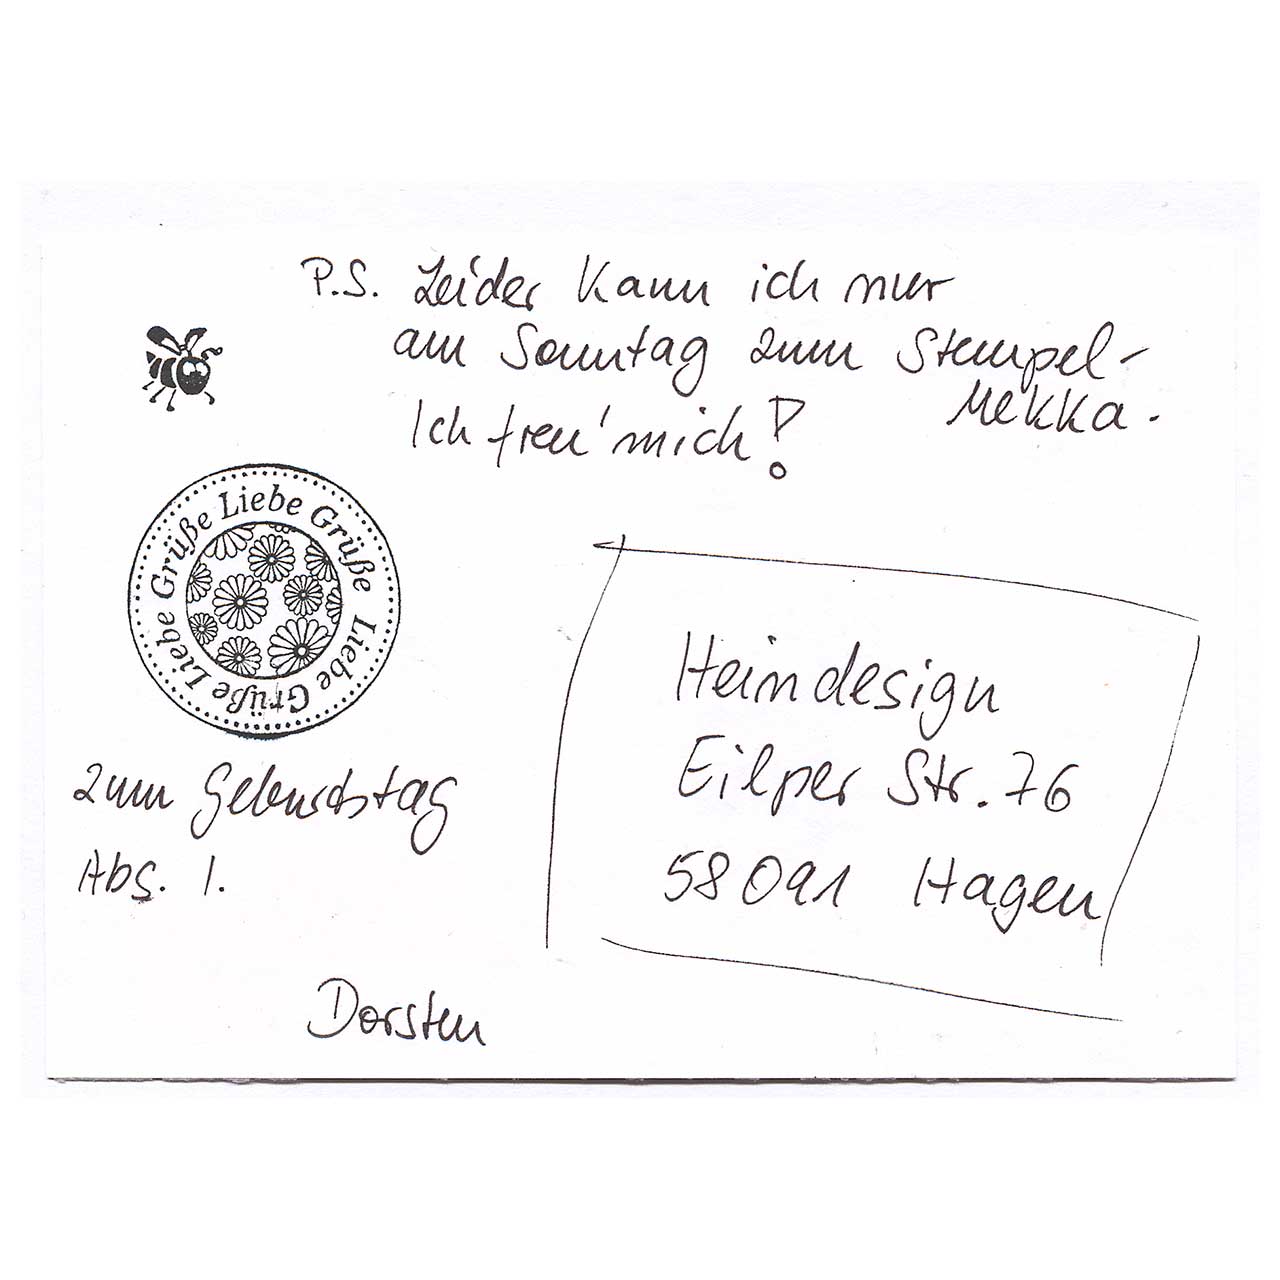 P.S. Leider kann ich nur
am Sonntag zum Stempel-
Mekka.
Ich freu' mich!
Liebe Grüße Liebe Grüße Liebe Grüße Liebe Grüße
zum Geburtstag
Abs. I.
Dorsten
Heindesign
Eilper Str. 76
58091 Hagen